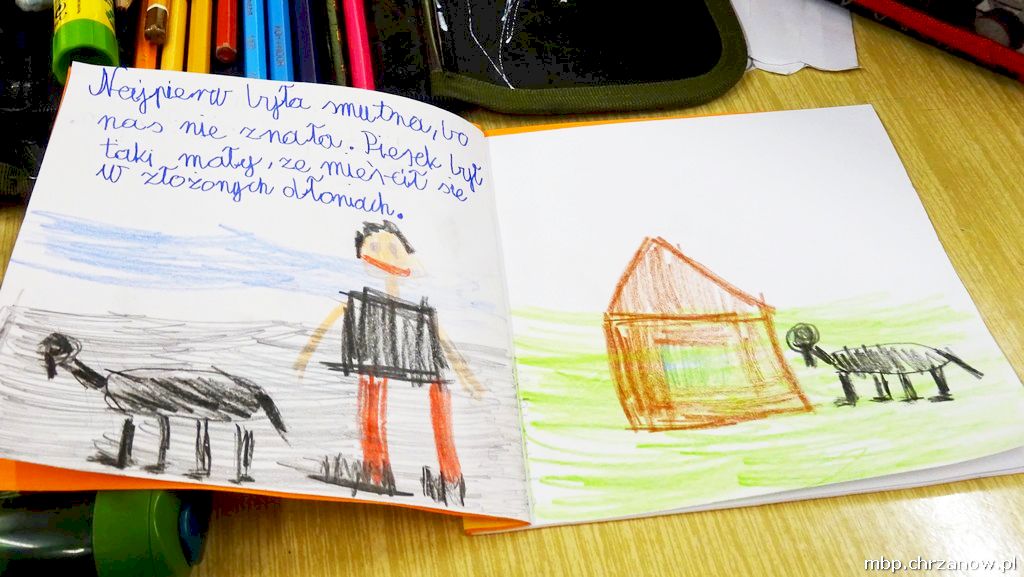 Najpierw była smutna, bo
nas nie znała. Piesek był
taki mały, że mieś-cił się
w złożonych dłoniach.
mbp.chrzanow.pl